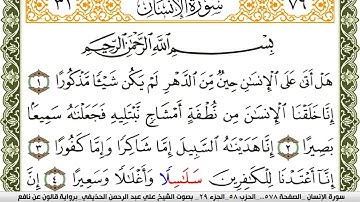 ٣١ سُورَةُ الْإِنْسَانِ ٧٦
بِسْمِ اللَّهِ الرَّحْمَٰنِ الرَّحِيمِ
هَلْ أَتَىٰ عَلَى الْإِنسَانِ حِينٌ مِّنَ الدَّهْرِ لَمْ يَكُن شَيْئًا مَّذْكُورًا ١
إِنَّا خَلَقْنَا الْإِنسَانَ مِن نُّطْفَةٍ أَمْشَاجٍ نَّبْتَلِيهِ فَجَعَلْنَاهُ سَمِيعًا
بَصِيرًا ٢ إِنَّا هَدَيْنَاهُ السَّبِيلَ إِمَّا شَاكِرًا وَإِمَّا كَفُورًا ٣
إِنَّا أَعْتَدْنَا لِلْكَافِرِينَ سَلَاسِلًا وَأَغْلَالًا وَسَعِيرًا ٤ إِنَّ
سورة الإنسان _الصفحة ٥٧٨_ الحزب ٥٨ الجزء ٢٩_ بصوت الشيخ علي عبد الرحمن الحذيفي_ برواية قالون عن نافع